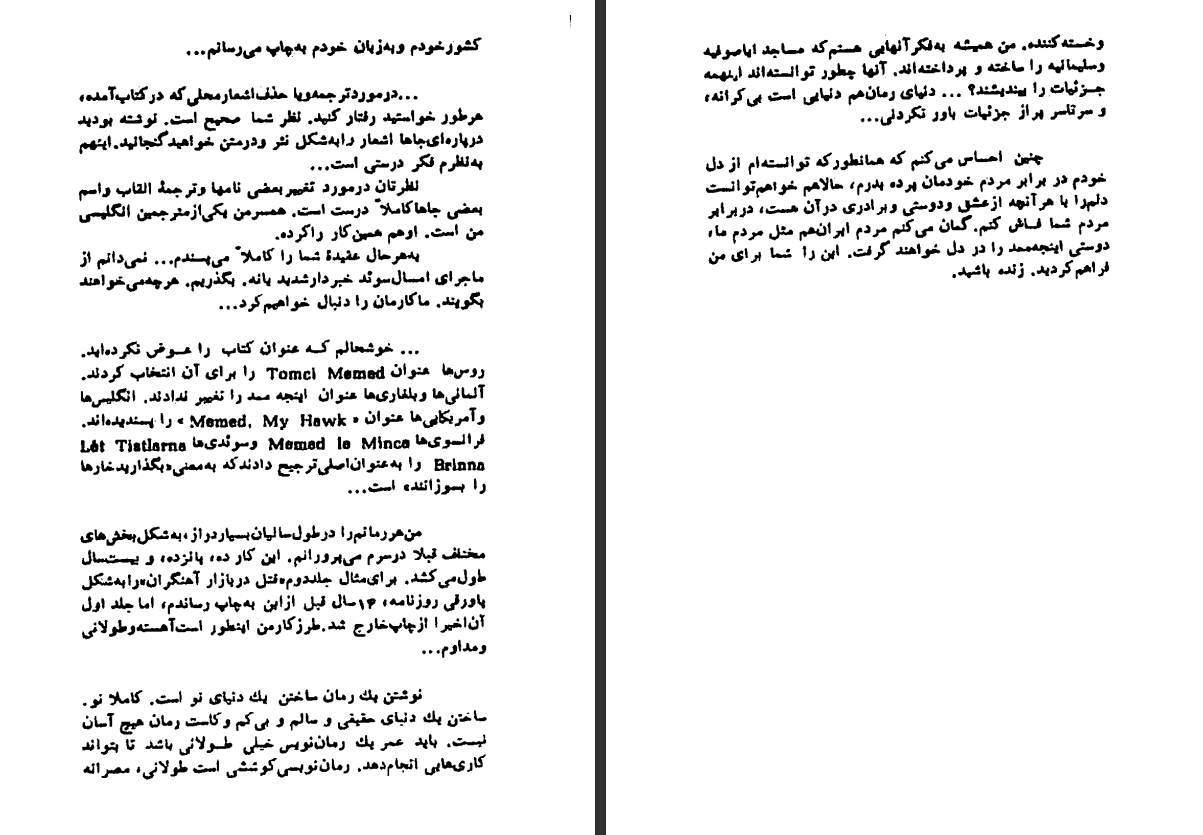 کشور خودم و به زبان خودم به چاپ می‌رسانم...
...در مورد ترجمه و یا حذف اشعار محلی که در کتاب آمده،
هرطور خواستید رفتار کنید. نظر شما صحیح است. نوشته بودید
درپاره‌ای جاها اشعار را به شکل نثر و در متن خواهید گنجانید. اینهم
به نظرم فکر درستی است...
نظرتان در مورد تغییر بعضی نامها و ترجمهٔ القاب و اسم
بعضی جاها کاملاً درست است. همسر من یکی از مترجمین انگلیسی
من است. او هم همین کار را کرده.
به هر حال عقیدهٔ شما را کاملاً می‌پسندم... نمی‌دانم از
ماجرای امسال سوئد خبردار شدید یا نه. بگذریم. هرچه می‌خواهند
بگویند. ما کارمان را دنبال خواهیم کرد...
... خوشحالم کـه عنوان کتاب را عـوض نکرده‌اید.
روس‌ها عنوان Tomci Memed را برای آن انتخاب کردند.
آلمانی‌ها و بلغاری‌ها عنوان اینجه ممد را تغییر ندادند. انگلیس‌ها
و آمریکایی‌ها عنوان « Memed, My Hawk » را پسندیده‌اند.
فرانسوی‌ها Memed le Mince و سوئدی‌ها Lét Tistlarna
Brinna را به عنوان اصلی ترجیح دادند که به معنی «بگذارید خارها
را بسوزانند» است...
من هر رمانم را در طول سالیان بسیار دراز، به شکل بخش‌های
مختلف قبلا در سرم می‌پرورانم. این کار ده، پانزده، و بیست سال
طول می‌کشد. برای مثال جلد دوم «قتل در بازار آهنگران» را به شکل
پاورقی روزنامه، ۱۴ سال قبل از این به چاپ رساندم، اما جلد اول
آن اخیرا از چاپ خارج شد. طرز کار من اینطور است آهسته و طولانی
و مداوم...
نوشتن یك رمان ساختن یك دنیای نو است. کاملا نو.
ساختن یك دنیای حقیقی و سالم و بی‌کم و کاست رمان هیچ آسان
نیست. باید عمر یك رمان‌نویس خیلی طـولانی باشد تا بتواند
کاری‌هایی انجام دهد. رمان‌نویسی کوششی است طولانی، مصرانه
و خسته‌کننده. من همیشه به فکر آنهایی هستم که مساجد ایاصوفیه
و سلیمانیه را ساخته و پرداخته‌اند. آنها چطور توانسته‌اند اینهمه
جـزئیات را بیندیشند؟ ... دنیای رمان هم دنیایی است بی‌کرانه،
و سرتاسر پر از جزئیات باور نکردنی...
چنین احساس می‌کنم که همانطور که توانسته‌ام از دل
خودم در برابر مردم خودمان پرده بدرم، حالا هم خواهم توانست
دلم را با هر آنچه از عشق و دوستی و برادری در آن هست، در برابر
مردم شما فـاش کنم. گمان می‌کنم مردم ایران هم مثل مردم ما،
دوستی اینجه‌ممد را در دل خواهند گرفت. این را شما برای من
فراهم کردید. زنده باشید.